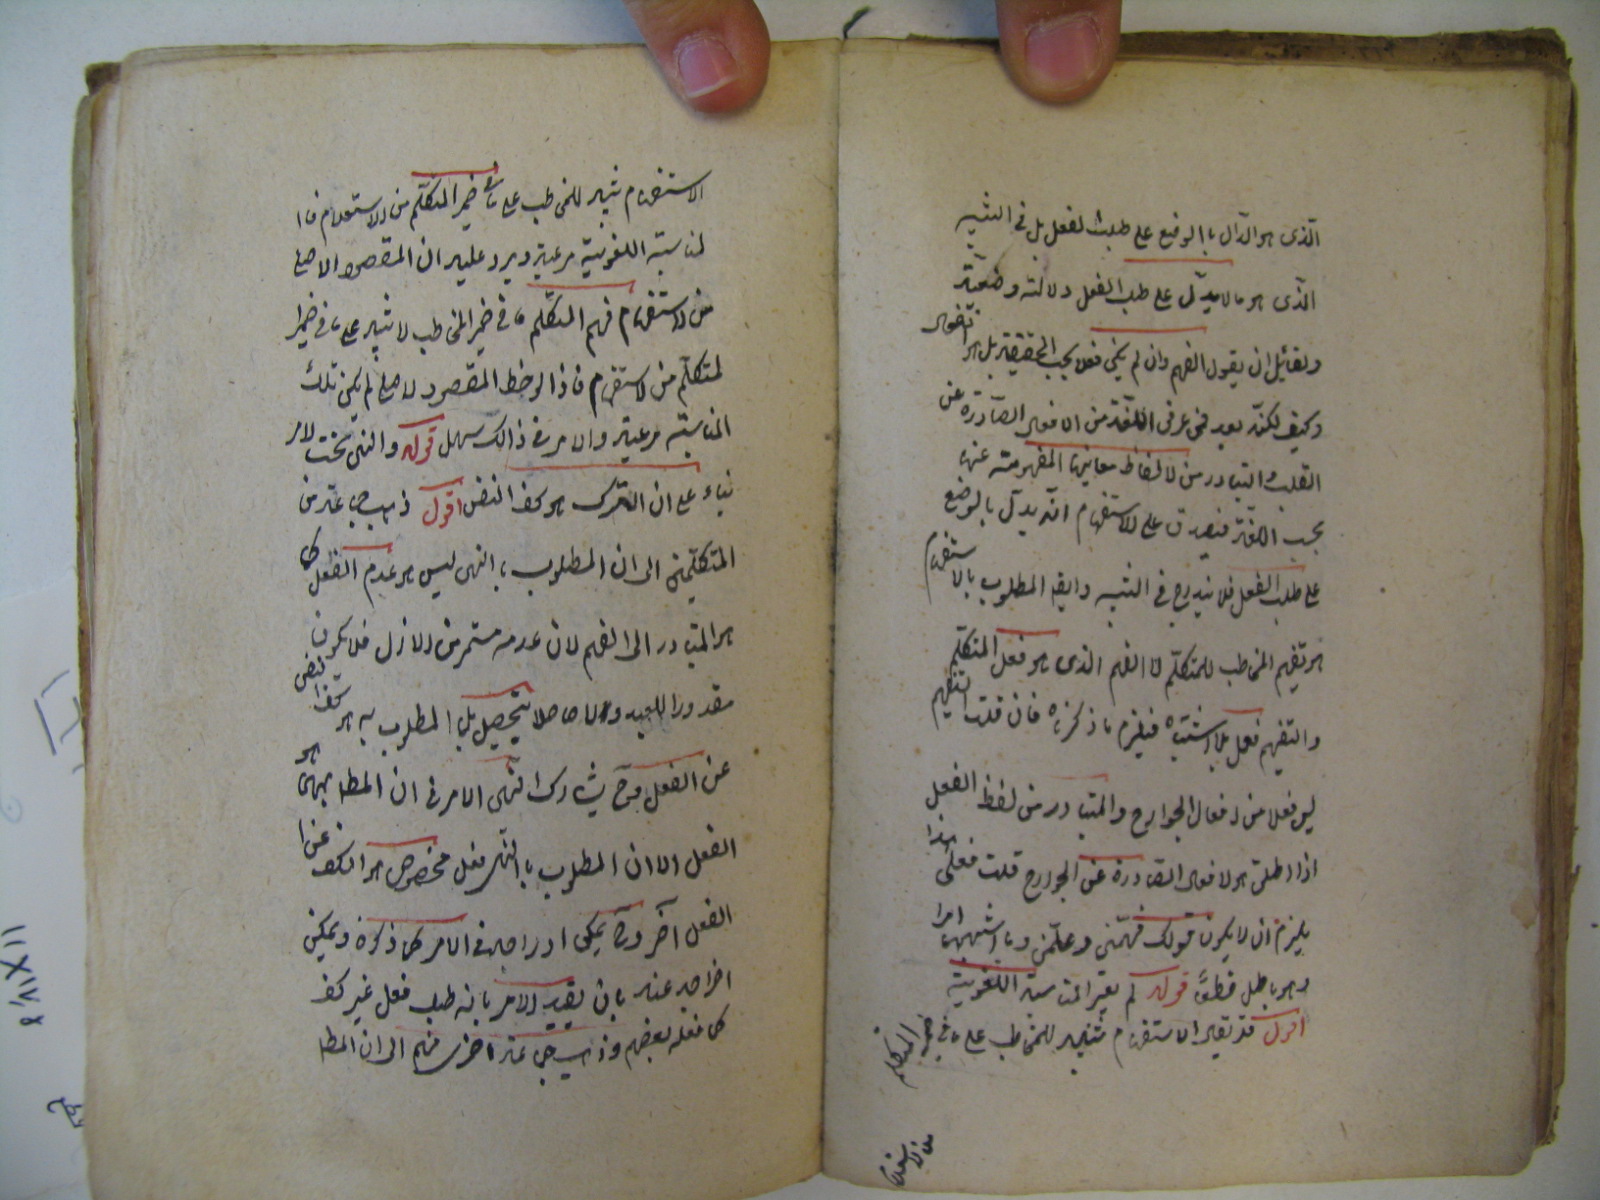 الذى هو الدال بالوضع على طلب الفعل بل فى التنبيه
الذى هو ما لا يدل على طلب الفعل دلالة وضعية
ولقائل ان يقول الفهم وان لم يكن فعلا بحسب الحقيقة بل هو انفعال
وكيف لكنه يعد فى عرف اللغة من الافعال الصادرة عن
القلب والتبادر من الالفاظ معانيها المفهومة عنها
بحسب اللغة فيصدق على الاستفهام انه يدل بالوضع
على طلب الفعل فلا يندرج فى التنبيه وايضا المطلوب بالاستفهام
هو تفهيم المخاطب للمتكلم لا الفهم الذى هو فعل المتكلم
والتفهيم فعل بلا اشتباه فيلزم ما ذكرناه فان قلت التفهيم
ليس فعلا من افعال الجوارح والمتبادر من لفظ الفعل
اذا اطلق هو الافعال الصادرة عن الجوارح قلت فعلى هذا
يلزم ان لا يكون قولك فهمنى وعلمنى وما اشبههما امرا
وهو باطل قطعا قوله لم يعتبر المناسبة اللغوية
اقول قد يقال الاستفهام تنبيه للمخاطب على ما فى ضمير المتكلم
من الاستفهام
الاستفهام تنبيه للمخاطب على ما فى ضمير المتكلم من الاستعلام فا
لمناسبة اللغوية مرعية ويرد عليه ان المقصود الاصلى
من الاستفهام فهم المتكلم ما فى ضمير المخاطب لا تنبيه على ما فى ضمير ا
لمتكلم من الاستفهام فاذا لوحظ المقصود الاصلى لم يكن تلك
المناسبة مرعية والامر فى ذالك سهل قوله والنهى تحت الامر
بناء على ان الترك هو كف النفس اقول ذهب جماعة من
المتكلمين الى ان المطلوب بالنهى ليس هو عدم الفعل كما
هو المتبادر الى الفهم لان عدمه مستمر من الازل فلا يكون
مقدورا للعبد ولا حاصلا بتحصيل بل المطلوب به هو كف النفس
عن الفعل وح يشارك النهى الامر فى ان المط بهما هو
الفعل الا ان المطلوب بالنهى فعل مخصوص هو الكف عن ا
الفعل آخر وح يمكن ادراجه فى الامر كما ذكره ويمكن
اخراجه عنه بان يقيد الامر بانه طلب فعل غير كف
كما فعله بعضهم وذهب جماعة اخرى منهم الى ان المط